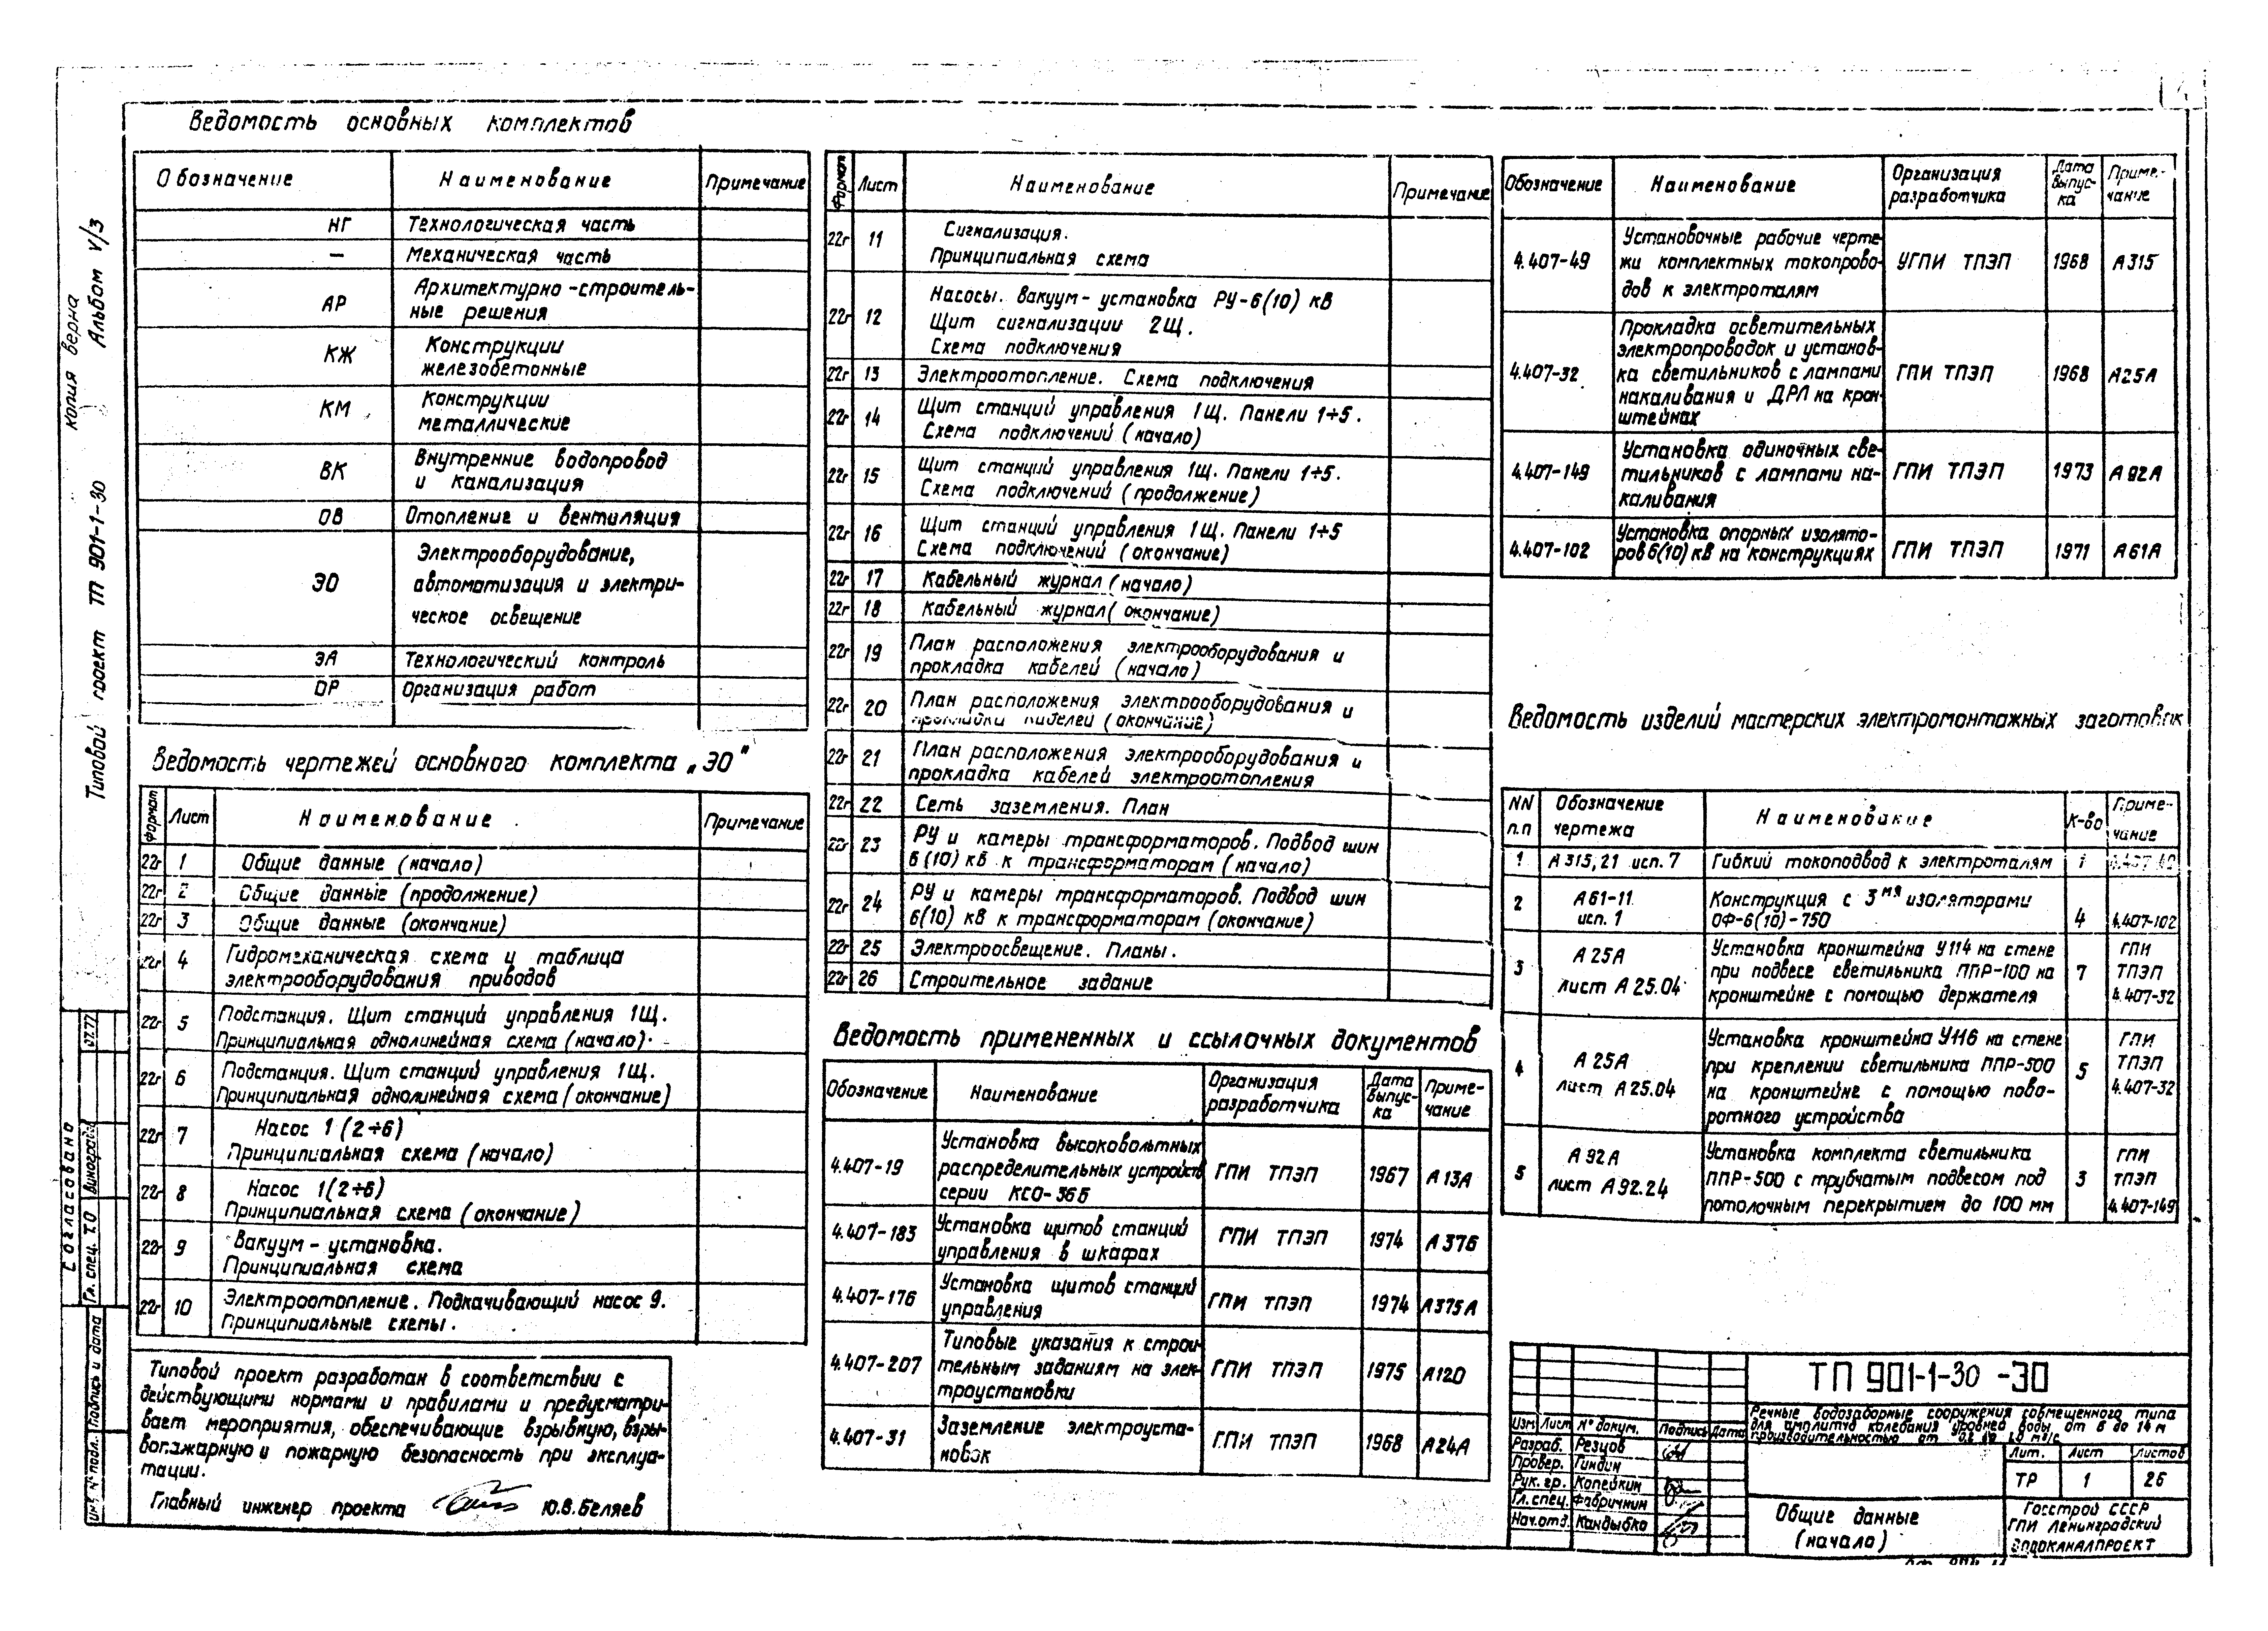 Копия верна
Альбом V/3
Типовой проект ТП 901-1-30
Ведомость основных комплектов
Обозначение Наименование Примечание
НГ Технологическая часть
— Механическая часть
АР Архитектурно-строитель-
ные решения
КЖ Конструкции
железобетонные
КМ Конструкции
металлические
ВК Внутренние водопровод
и канализация
ОВ Отопление и вентиляция
ЭО Электрооборудование,
автоматизация и электри-
ческое освещение
ЭА Технологический контроль
ОР Организация работ
Ведомость чертежей основного комплекта „ЭО"
Формат Лист Наименование Примечание
22г 1 Общие данные (начало)
22г 2 Общие данные (продолжение)
22г 3 Общие данные (окончание)
22г 4 Гидромеханическая схема и таблица
электрооборудования приводов
22г 5 Подстанция. Щит станций управления 1Щ.
Принципиальная однолинейная схема (начало).
22г 6 Подстанция. Щит станций управления 1Щ.
Принципиальная однолинейная схема (окончание)
22г 7 Насос 1 (2÷6)
Принципиальная схема (начало)
22г 8 Насос 1(2÷6)
Принципиальная схема (окончание)
22г 9 Вакуум-установка.
Принципиальная схема
22г 10 Электроотопление. Подкачивающий насос 9.
Принципиальные схемы.
Типовой проект разработан в соответствии с
действующими нормами и правилами и предусматри-
вает мероприятия, обеспечивающие взрывную, взры-
вопожарную и пожарную безопасность при эксплуа-
тации.
Главный инженер проекта Ю.В.Беляев
Формат Лист Наименование Примечание
22г 11 Сигнализация.
Принципиальная схема
22г 12 Насосы. Вакуум-установка РУ-6(10) кВ
Щит сигнализации 2Щ.
Схема подключения
22г 13 Электроотопление. Схема подключения
22г 14 Щит станций управления 1Щ. Панели 1÷5.
Схема подключений (начало)
22г 15 Щит станций управления 1Щ. Панели 1÷5.
Схема подключений (продолжение)
22г 16 Щит станций управления 1Щ. Панели 1÷5
Схема подключений (окончание)
22г 17 Кабельный журнал (начало)
22г 18 Кабельный журнал (окончание)
22г 19 План расположения электрооборудования и
прокладка кабелей (начало)
22г 20 План расположения электрооборудования и
прокладки кабелей (окончание)
22г 21 План расположения электрооборудования и
прокладка кабелей электроотопления
22г 22 Сеть заземления. План
22г 23 РУ и камеры трансформаторов. Подвод шин
6(10) кВ к трансформаторам (начало)
22г 24 РУ и камеры трансформаторов. Подвод шин
6(10) кВ к трансформаторам (окончание)
22г 25 Электроосвещение. Планы.
22г 26 Строительное задание
Ведомость примененных и ссылочных документов
Обозначение Наименование Организация
разработчика Дата
выпус-
ка Приме-
чание
4.407-19 Установка высоковольтных
распределительных устройств
серии КСО-366 ГПИ ТПЭП 1967 А13А
4.407-183 Установка щитов станций
управления в шкафах ГПИ ТПЭП 1974 А376
4.407-176 Установка щитов станций
управления ГПИ ТПЭП 1974 А375А
4.407-207 Типовые указания к строи-
тельным заданиям на элек-
троустановки ГПИ ТПЭП 1975 А120
4.407-31 Заземление электроуста-
новок ГПИ ТПЭП 1968 А24А
Обозначение Наименование Организация
разработчика Дата
выпус-
ка Приме-
чание
4.407-49 Установочные рабочие черте-
жи комплектных токопрово-
дов к электроталям УГПИ ТПЭП 1968 А315
4.407-32 Прокладка осветительных
электропроводок и установ-
ка светильников с лампами
накаливания и ДРЛ на крон-
штейнах ГПИ ТПЭП 1968 А25А
4.407-149 Установка одиночных све-
тильников с лампами на-
каливания ГПИ ТПЭП 1973 А92А
4.407-102 Установка опорных изолято-
ров 6(10) кВ на конструкциях ГПИ ТПЭП 1971 А61А
Ведомость изделий мастерских электромонтажных заготовок
NN
п.п Обозначение
чертежа Наименование К-во Приме-
чание
1 А315,21 исп.7 Гибкий токоподвод к электроталям 1 4.407-49
2 А61-11
исп.1 Конструкция с 3мя изоляторами
ОФ-6(10)-750 4 4.407-102
3 А25А
лист А25.04 Установка кронштейна У114 на стене
при подвесе светильника ППР-100 на
кронштейне с помощью держателя 7 ГПИ
ТПЭП
4.407-32
4 А25А
лист А25.04 Установка кронштейна У116 на стене
при креплении светильника ППР-500
на кронштейне с помощью пово-
ротного устройства 5 ГПИ
ТПЭП
4.407-32
5 А92А
лист А92.24 Установка комплекта светильника
ППР-500 с трубчатым подвесом под
потолочным перекрытием до 100 мм 3 ГПИ
ТПЭП
4.407-149
ТП 901-1-30 -ЭО
Речные водозаборные сооружения совмещенного типа
для амплитуд колебания уровней воды от 8 до 14 м
производительностью от
Изм. Лист № докум. Подпись Дата
Разраб. Резцов
Провер. Гиндин
Рук. гр. Копейкин
Гл. спец. Фабричнин
Нач. отд. Кандыбко
Лит. Лист Листов
ТР 1 26
Общие данные
(начало)
Госстрой СССР
ГПИ Ленинградский
ВОДОКАНАЛПРОЕКТ
Согласовано
Гл. спец. ТО Виноградов
07.77
Инв. № подл. Подпись и дата